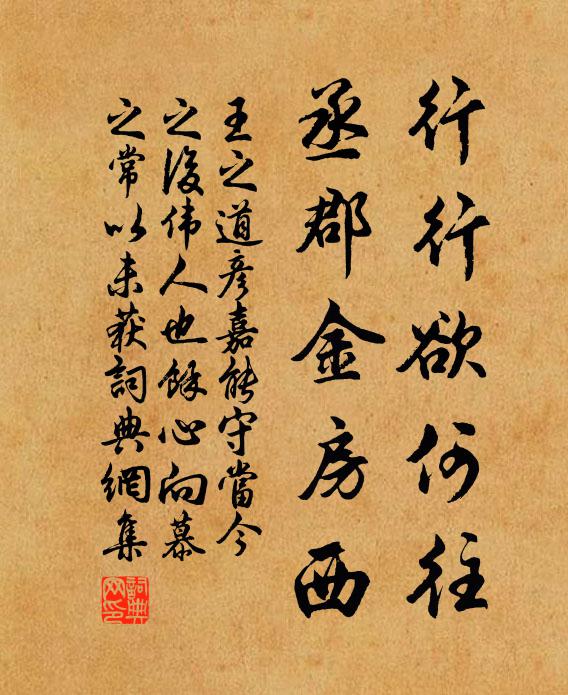 行行欲何往
丞郡金房西
王之道彦嘉能守當今
之後伟人也餘心向慕
之常以未获詞典網集
詞典
网印